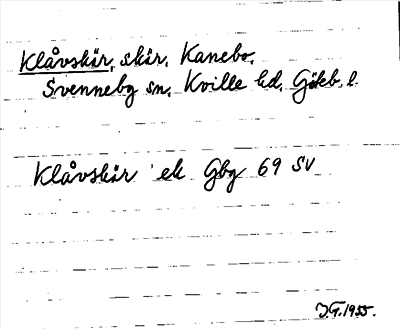 Klåvskär, skär. Kanebo.
Svenneby sn. Kville hd. Göteb. l.
Klåvskär ek Gbg 69 SV
J.G. 1955.